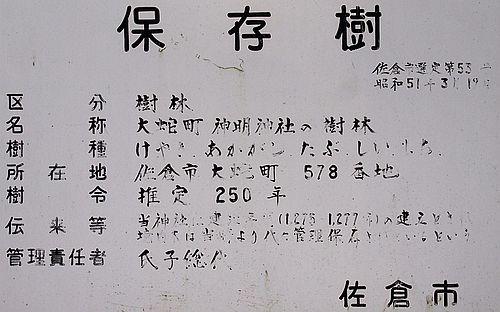 保存樹
佐倉市選定第53
昭和51年3月19日
区分 樹林
名称 大蛇町 神明神社の樹林
樹種 けやき、あかがし、たぶ、しい、もち
所在地 佐倉市大蛇町 578番地
樹令 推定 250年
伝来等 当神社は建治 (1,275-1,277年)の建立
代々管理保存 という
管理責任者 氏子総代
佐倉市